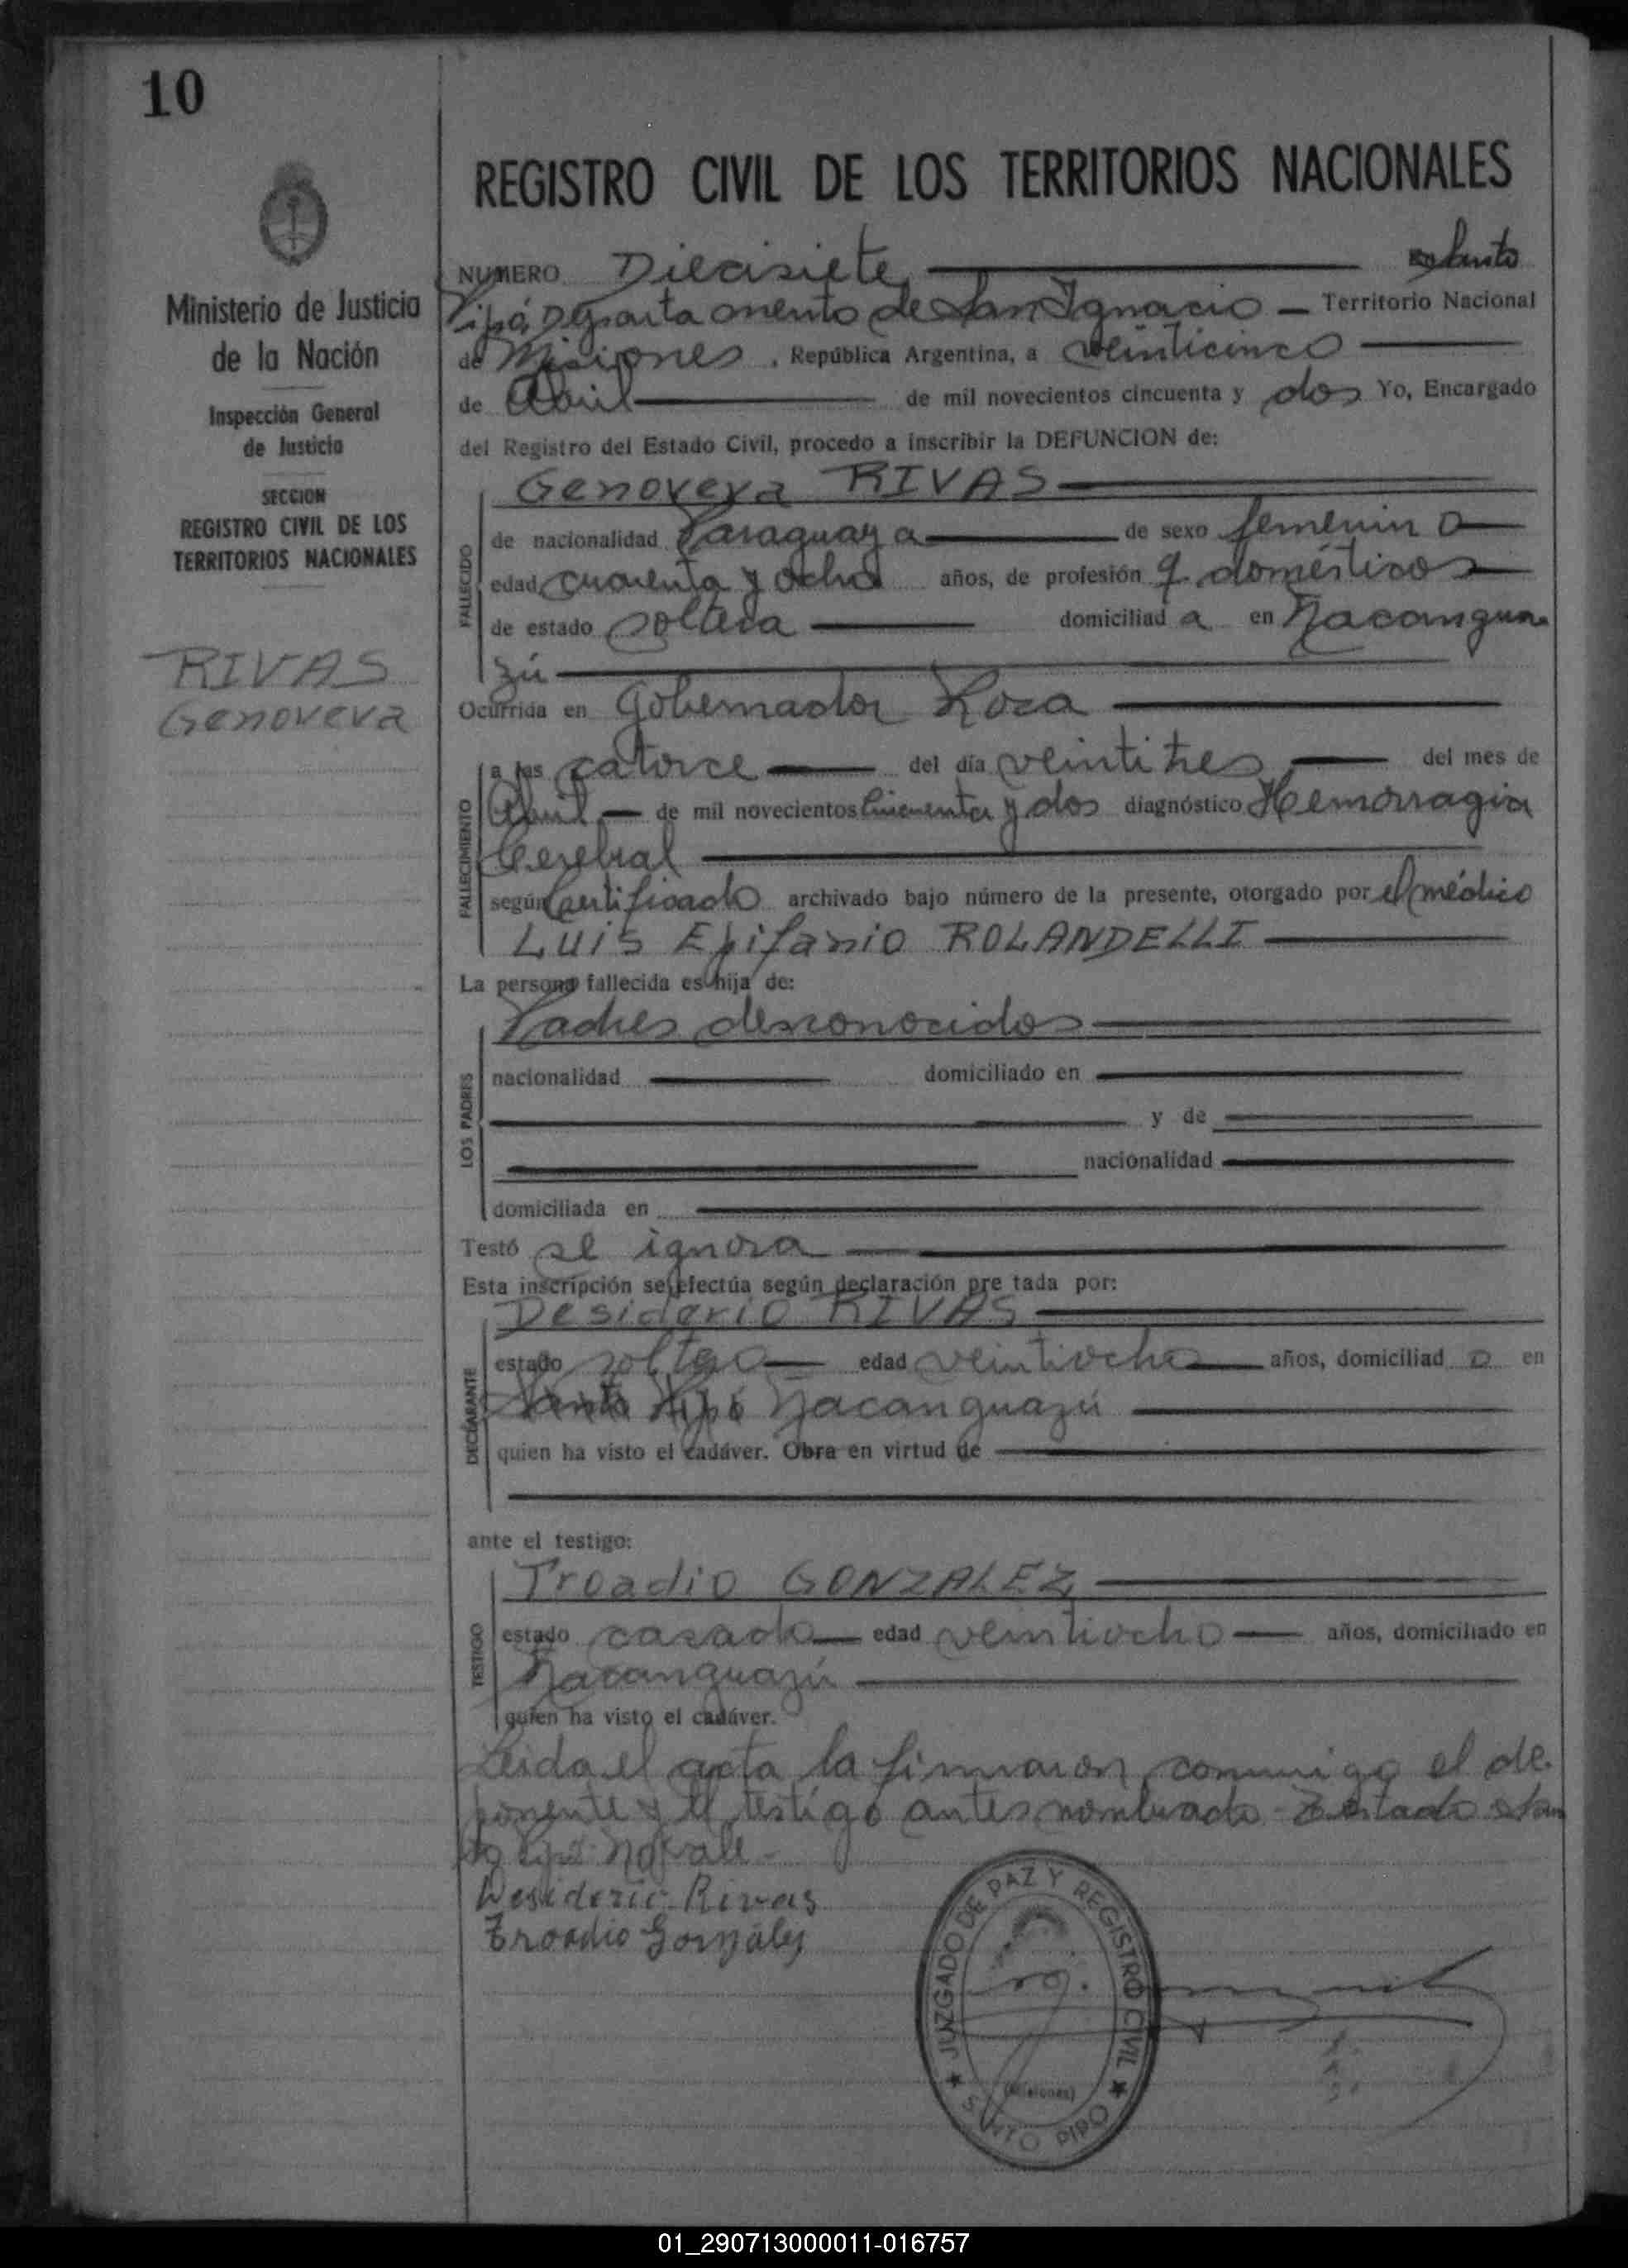 10
REGISTRO CIVIL DE LOS TERRITORIOS NACIONALES
Ministerio de Justicia
de la Nación
Inspección General
de Justicia
SECCION
REGISTRO CIVIL DE LOS
TERRITORIOS NACIONALES
RIVAS
Genoveva
NUMERO Diecisiete Santo
Pipó Departamento de San Ignacio Territorio Nacional
de Misiones, República Argentina, a veinticinco
de Abril de mil novecientos cincuenta y dos Yo, Encargado
del Registro del Estado Civil, procedo a inscribir la DEFUNCION de:
Genoveva RIVAS
FALLECIDO
de nacionalidad Paraguaya de sexo femenino
edad cuarenta y ocho años, de profesión q. domésticos
de estado soltera domiciliad a en Ñacangua
zú
Ocurrida en Gobernador Roca
FALLECIMIENTO
a las catorce del día veintitres del mes de
Abril de mil novecientos cincuenta y dos diagnóstico Hemorragia
Cerebral
según Certificado archivado bajo número de la presente, otorgado por el médico
Luis Epifanio ROLANDELLI
La persona fallecida es hija de:
LOS PADRES
Padres desconocidos
nacionalidad domiciliado en
y de
nacionalidad
domiciliada en
Testó se ignora
Esta inscripción se efectúa según declaración pre tada por:
DECLARANTE
Desiderio RIVAS
estado soltero edad veintiocho años, domiciliad o en
Santo Pipó Ñacanguazú
quien ha visto el cadáver. Obra en virtud de
ante el testigo:
TESTIGO
Troadio GONZALEZ
estado casado edad veintiocho años, domiciliado en
Ñacanguazú
quien ha visto el cadáver.
Leida el acta la firmaron conmigo el de-
ponente y el testigo antes nombrado - Testado San
to Pipó No vale -
Desiderio Rivas
Troadio Gonzáles
JUZGADO DE PAZ Y REGISTRO CIVIL
(Misiones)
SANTO PIPO
01_290713000011-016757